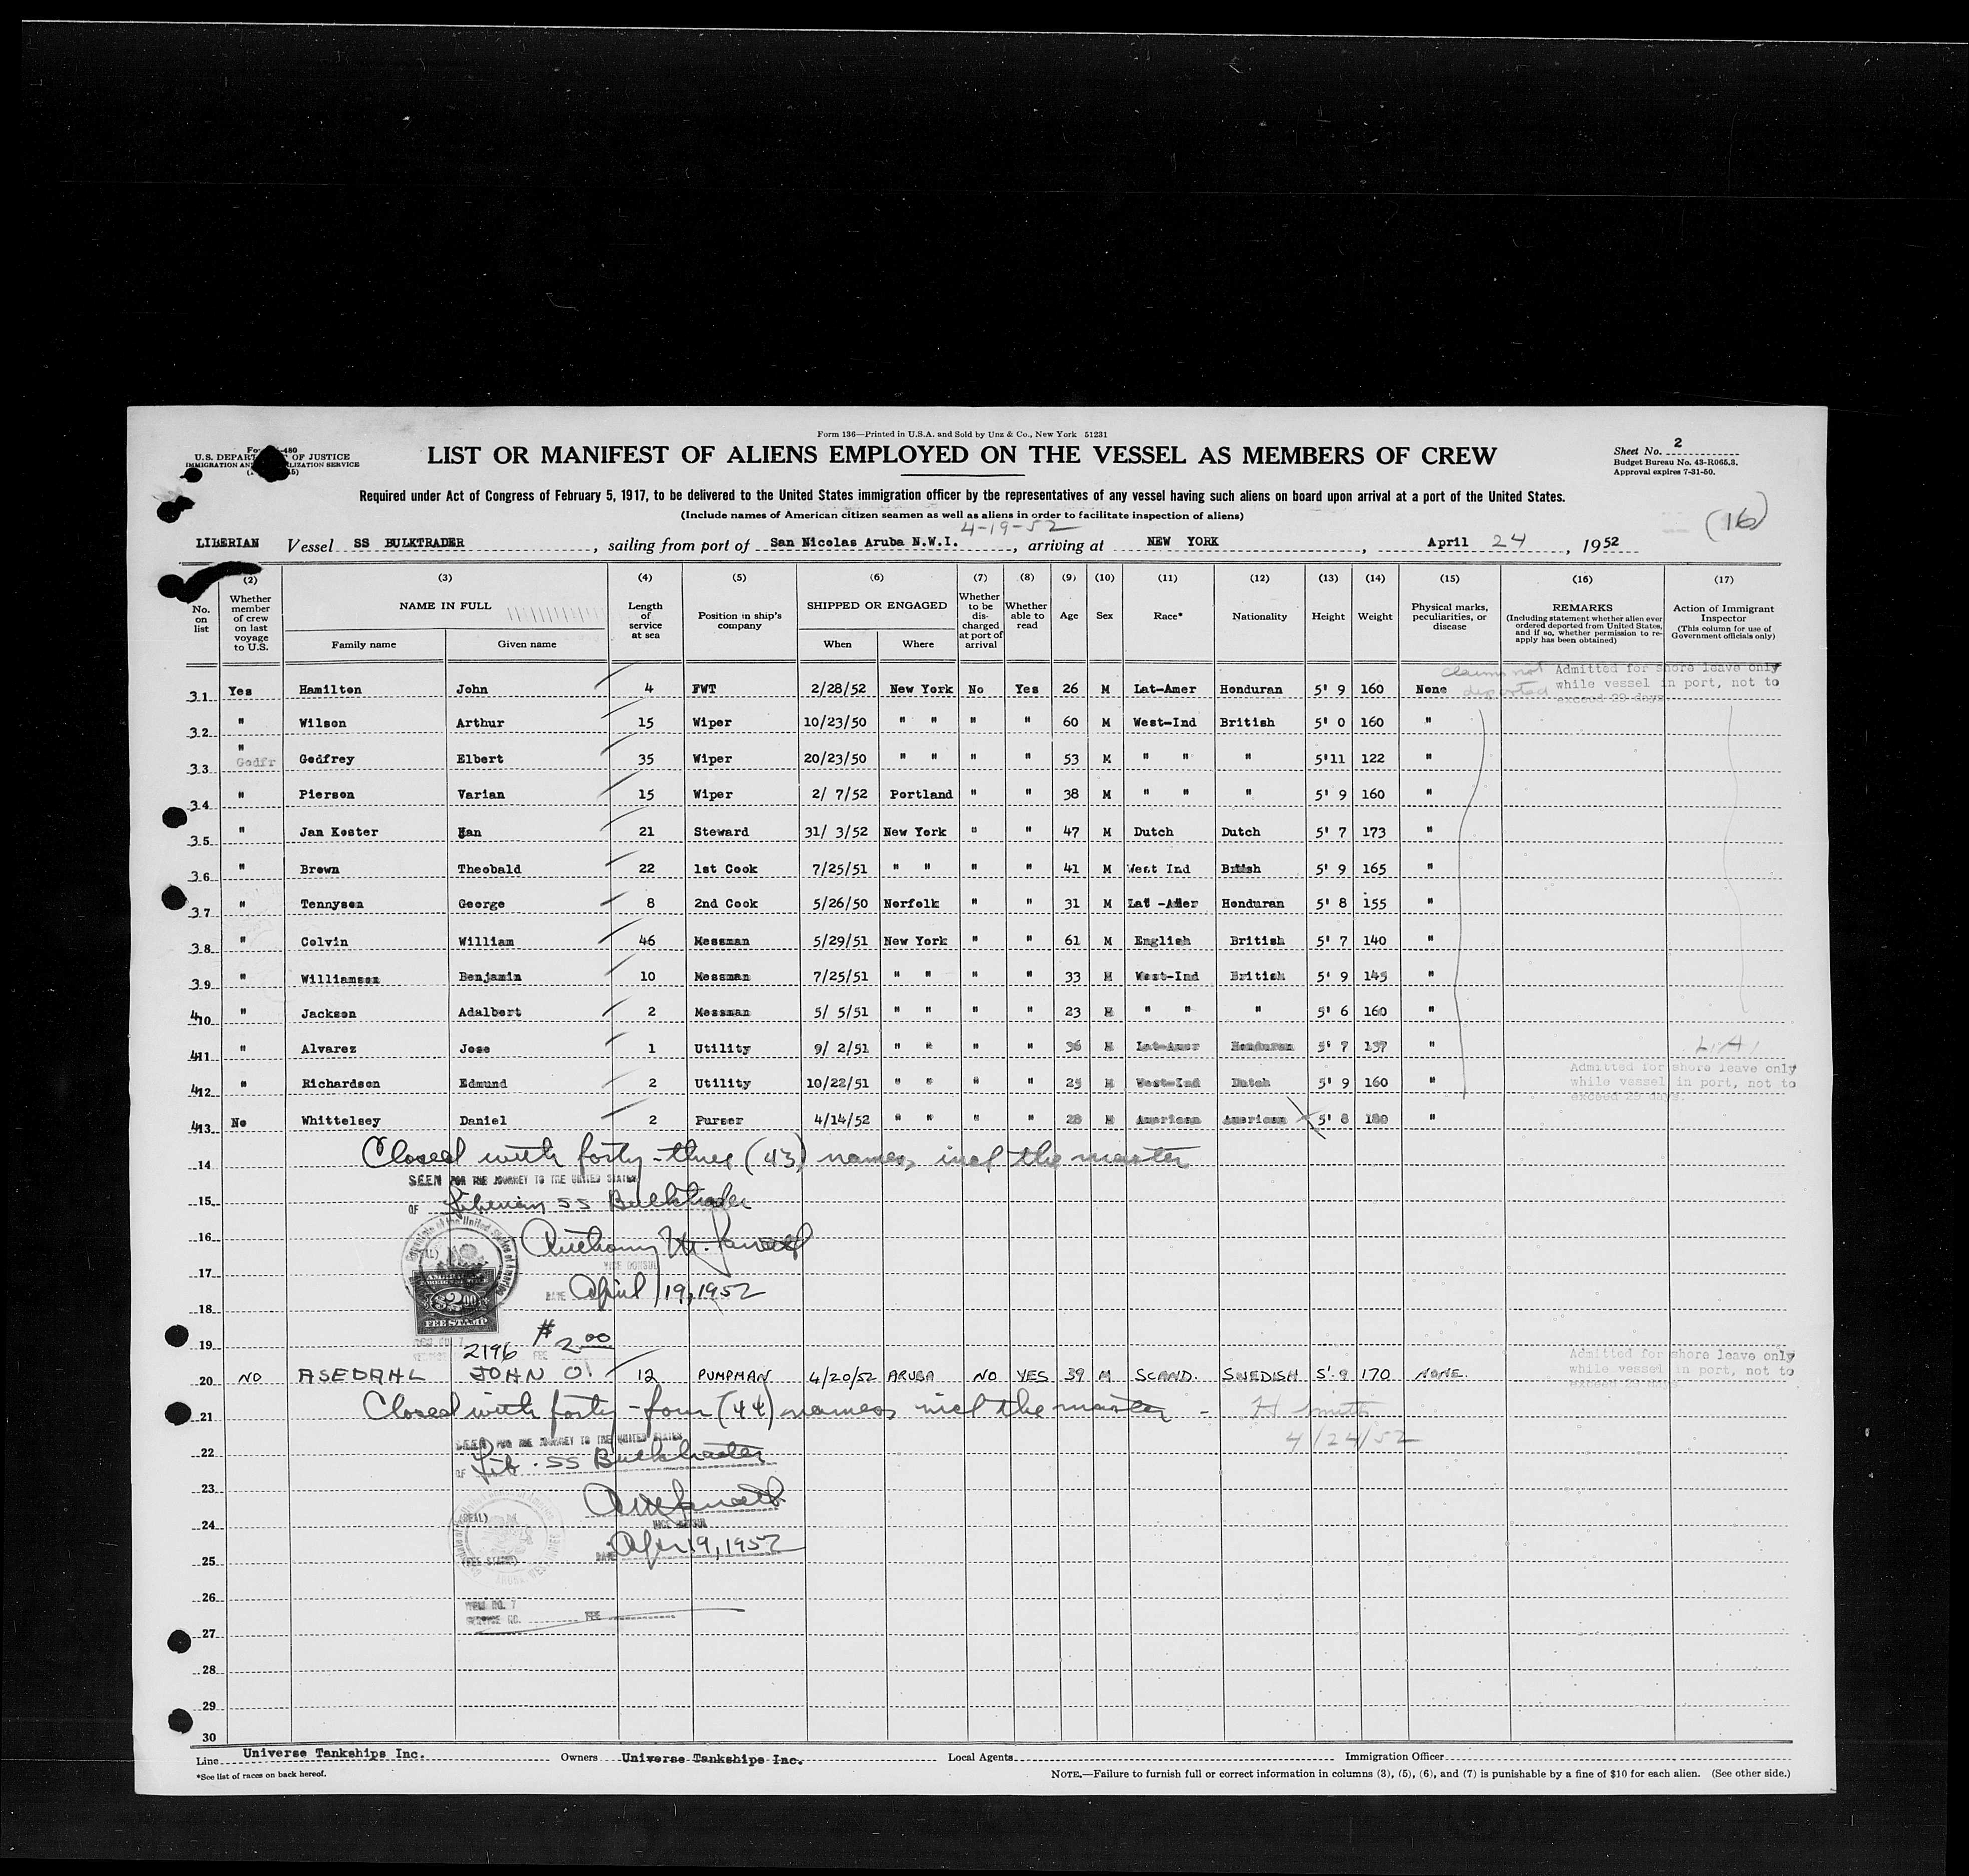 Form 136—Printed in U.S.A. and Sold by Unz & Co., New York 51231
U.S. DEPARTMENT OF JUSTICE
LIST OR MANIFEST OF ALIENS EMPLOYED ON THE VESSEL AS MEMBERS OF CREW
Sheet No. 2
Budget Bureau No. 43-R065.3.
Approval expires 7-31-50.
Required under Act of Congress of February 5, 1917, to be delivered to the United States immigration officer by the representatives of any vessel having such aliens on board upon arrival at a port of the United States.
(Include names of American citizen seamen as well as aliens in order to facilitate inspection of aliens)
4-19-52
(16)
LIBERIAN Vessel SS BULKTRADER, sailing from port of San Nicolas Aruba N.W.I., arriving at NEW YORK, April 24, 1952
(2) (3) (4) (5) (6) (7) (8) (9) (10) (11) (12) (13) (14) (15) (16) (17)
No. on list
Whether member of crew on last voyage to U.S.
NAME IN FULL
Family name Given name
Length of service at sea
Position in ship's company
SHIPPED OR ENGAGED
When Where
Whether to be discharged at port of arrival
Whether able to read
Age Sex Race* Nationality Height Weight
Physical marks, peculiarities, or disease
REMARKS
(Including statement whether alien ever ordered deported from United States, and if so, whether permission to reapply has been obtained)
Action of Immigrant Inspector
(This column for use of Government officials only)
claims not deported
Admitted for shore leave only
while vessel in port, not to
exceed 29 days
31 Yes Hamilton John 4 FWT 2/28/52 New York No Yes 26 M Lat-Amer Honduran 5' 9 160 None
32 " Wilson Arthur 15 Wiper 10/23/50 " " " " 60 M West-Ind British 5' 0 160 "
33 " Godfr Godfrey Elbert 35 Wiper 20/23/50 " " " " 53 M " " " 5'11 122 "
34 " Pierson Varian 15 Wiper 2/ 7/52 Portland " " 38 M " " " 5' 9 160 "
35 " Jan Koster Han 21 Steward 31/ 3/52 New York " " 47 M Dutch Dutch 5' 7 173 "
36 " Brown Theobald 22 1st Cook 7/25/51 " " " " 41 M West Ind British 5' 9 165 "
37 " Tennyson George 8 2nd Cook 5/26/50 Norfolk " " 31 M Lat -Amer Honduran 5' 8 155 "
38 " Colvin William 46 Messman 5/29/51 New York " " 61 M English British 5' 7 140 "
39 " Williamson Benjamin 10 Messman 7/25/51 " " " " 33 M West-Ind British 5' 9 145 "
410 " Jackson Adalbert 2 Messman 5/ 5/51 " " " " 23 M " " " 5' 6 160 "
411 " Alvarez Jose 1 Utility 9/ 2/51 " " " " 36 M Lat-Amer Honduran 5' 7 137 "
412 " Richardson Edmund 2 Utility 10/22/51 " " " " 25 M West-Ind Dutch 5' 9 160 "
Admitted for shore leave only
while vessel in port, not to
exceed 29 days.
413 No Whittelsey Daniel 2 Purser 4/14/52 " " " " 28 M American American 5' 8 180 "
14 Closed with forty-three (43) names, incl the master
SEEN FOR THE JOURNEY TO THE UNITED STATES
15 OF Liberian SS Bulktrader
16 Anthony
17 VICE CONSUL
DATE April 19, 1952
18
AMERICAN FOREIGN SERVICE
$2.00
FEE STAMP
19 2196 FEE $2.00
Admitted for shore leave only
while vessel in port, not to
exceed 29 days
20 NO ASEDAHL JOHN O. 12 PUMPMAN 4/20/52 ARUBA NO YES 39 M SCAND. SWEDISH 5' 9 170 NONE
21 Closed with forty-four (44) names, incl the master - H Smith
4/24/52
SEEN FOR THE JOURNEY TO THE UNITED STATES
22 OF Lib. SS Bulktrader
23
24 (SEAL) VICE CONSUL
DATE Apr 19, 1952
25 (FEE STAMP)
26
ITEM NO. 7
SERVICE NO. FEE
27
28
29
30
Line Universe Tankships Inc. Owners Universe Tankships Inc. Local Agents Immigration Officer
*See list of races on back hereof.
NOTE.—Failure to furnish full or correct information in columns (3), (5), (6), and (7) is punishable by a fine of $10 for each alien. (See other side.)